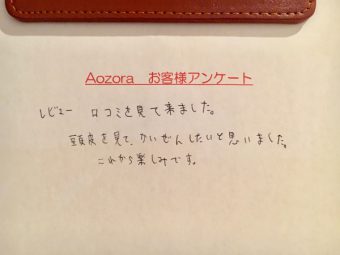 Aozora お客様アンケート
レビュー 口コミを見て来ました。
頭皮を見て、かいぜんしたいと思いました。
これから楽しみです。